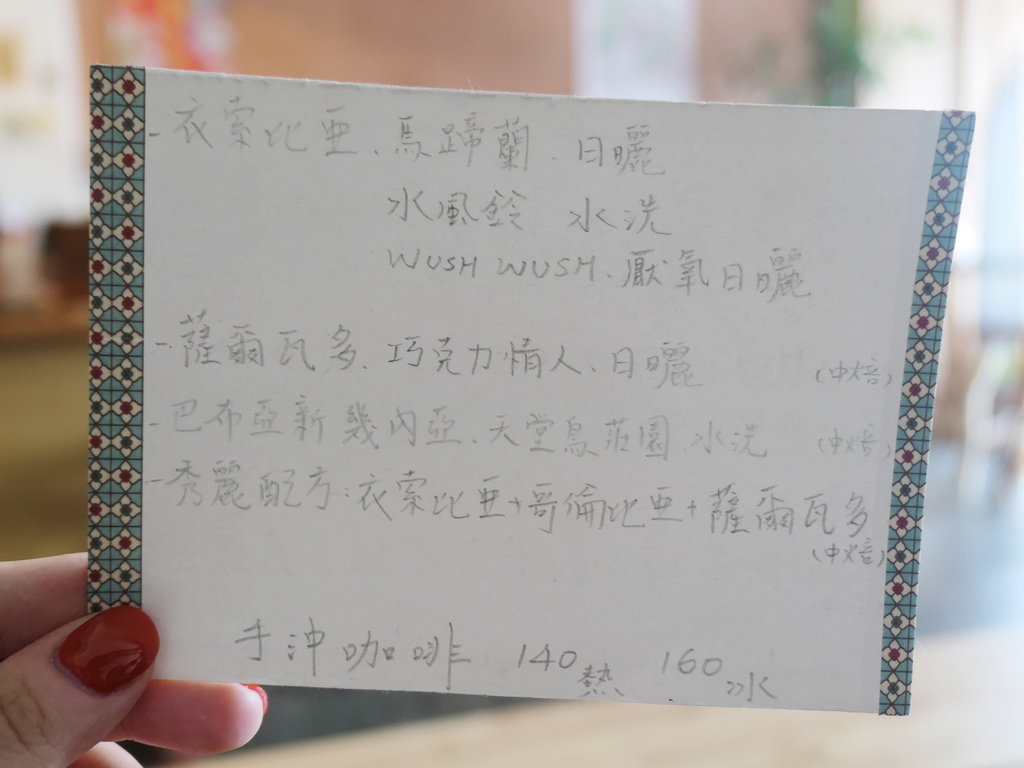 - 衣索比亞、馬蹄蘭、日曬
水風鈴 水洗
WUSH WUSH、厭氧日曬
- 薩爾瓦多、巧克力情人、日曬 (中焙)
- 巴布亞新幾內亞、天堂鳥莊園 水洗 (中焙)
- 秀麗配方:衣索比亞+哥倫比亞+薩爾瓦多
(中焙)
手沖咖啡 140熱 160冰